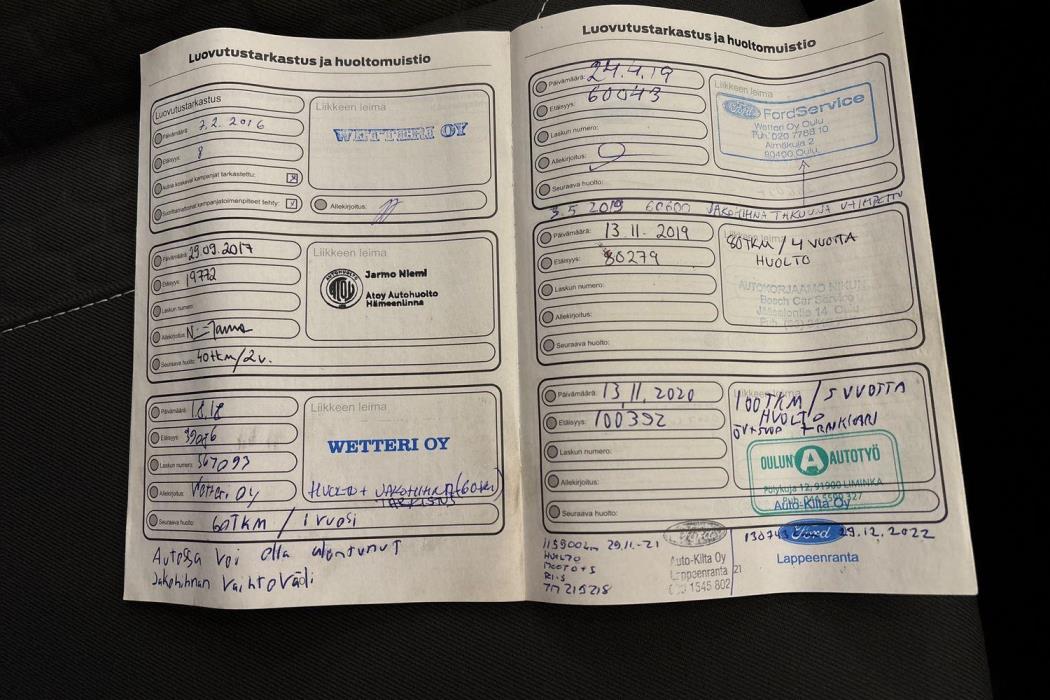 Luovutustarkastus ja huoltomuistio
Luovutustarkastus
Päivämäärä: 2.2.2016
Etäisyys: 8
kampanjat tarkastettu:
kampanjatoimenpiteet tehty:
Liikkeen leima
WETTERI OY
Allekirjoitus:
Päivämäärä: 29.09.2017
Etäisyys: 19772
Laskun numero:
Allekirjoitus:
Seuraava huolto: 40tkm/2v.
Liikkeen leima
AUTOHUOLTO
ATOY
Jarmo Niemi
Atoy Autohuolto
Hämeenlinna
Päivämäärä:
Etäisyys:
Laskun numero: 367093
Allekirjoitus: Wetteri OY
Seuraava huolto: 60TKM / 1 vuosi
Liikkeen leima
WETTERI OY
HUOLTO + JAKOHIHNA (60tkm)
TARKISTUS
Autossa voi olla
Jakohihnan vaihtoväli
Luovutustarkastus ja huoltomuistio
Päivämäärä: 24.4.19
Etäisyys: 60043
Laskun numero:
Allekirjoitus:
Seuraava huolto:
Liikkeen leima
Ford FordService
Wetteri Oy Oulu
Puh. 020 7768 10
Almakuja 2
90400 Oulu
3.5 2019 60600 JAKOHIHNA TAKUUNA VAIHDETTU
Päivämäärä: 13.11.2019
Etäisyys: 80279
Laskun numero:
Allekirjoitus:
Seuraava huolto:
Liikkeen leima
80TKM / 4 VUOTTA
HUOLTO
AUTOKORJAAMO NIKUN
Bosch Car Service
14, Oulu
Päivämäärä: 13.11.2020
Etäisyys: 100392
Laskun numero:
Allekirjoitus:
Seuraava huolto:
Liikkeen leima
100TKM / 5 VUOTTA
HUOLTO
OULUN A AUTOTYÖ
Polykuja 12, 91900 LIMINKA
Auto-Kilta Oy
115900km 29.11.-21
HUOLTO
Ford
Auto-Kilta Oy
Lappeenranta
1545 802
Ford 29.12.2022
Lappeenranta